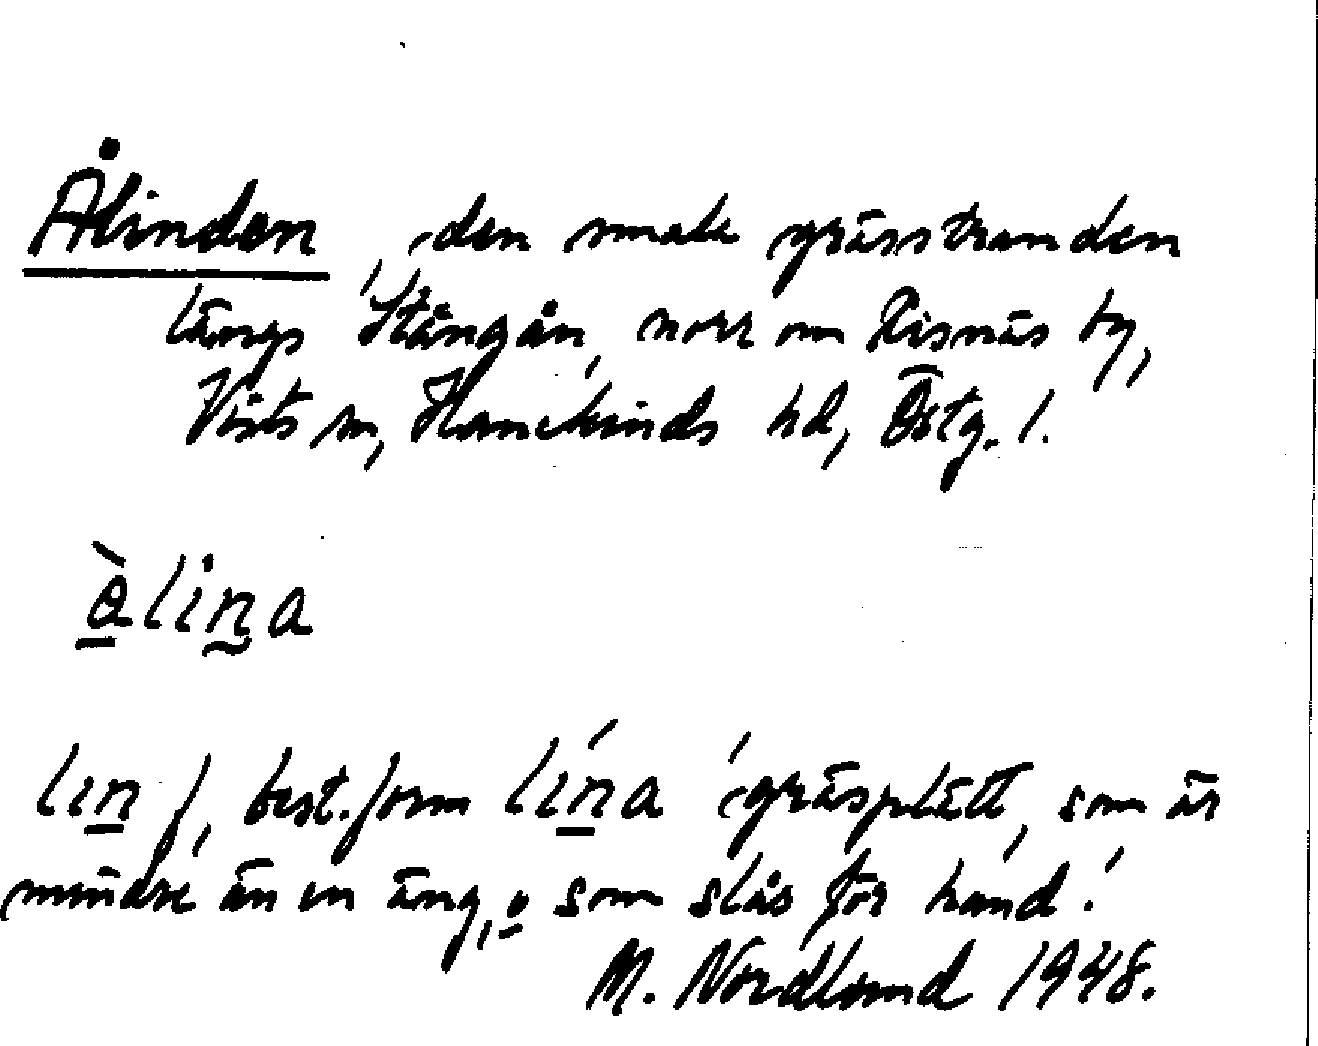 Ålinden, den smala grässtranden
längs Stångån, norr om Risnäs by,
Vists sn, Hanekinds hd, Östg. l.
àlina
lin f, best. form lína 'gräsplätt, som är
mindre än en äng, o som slås för hand.'
M. Nordlund 1948.